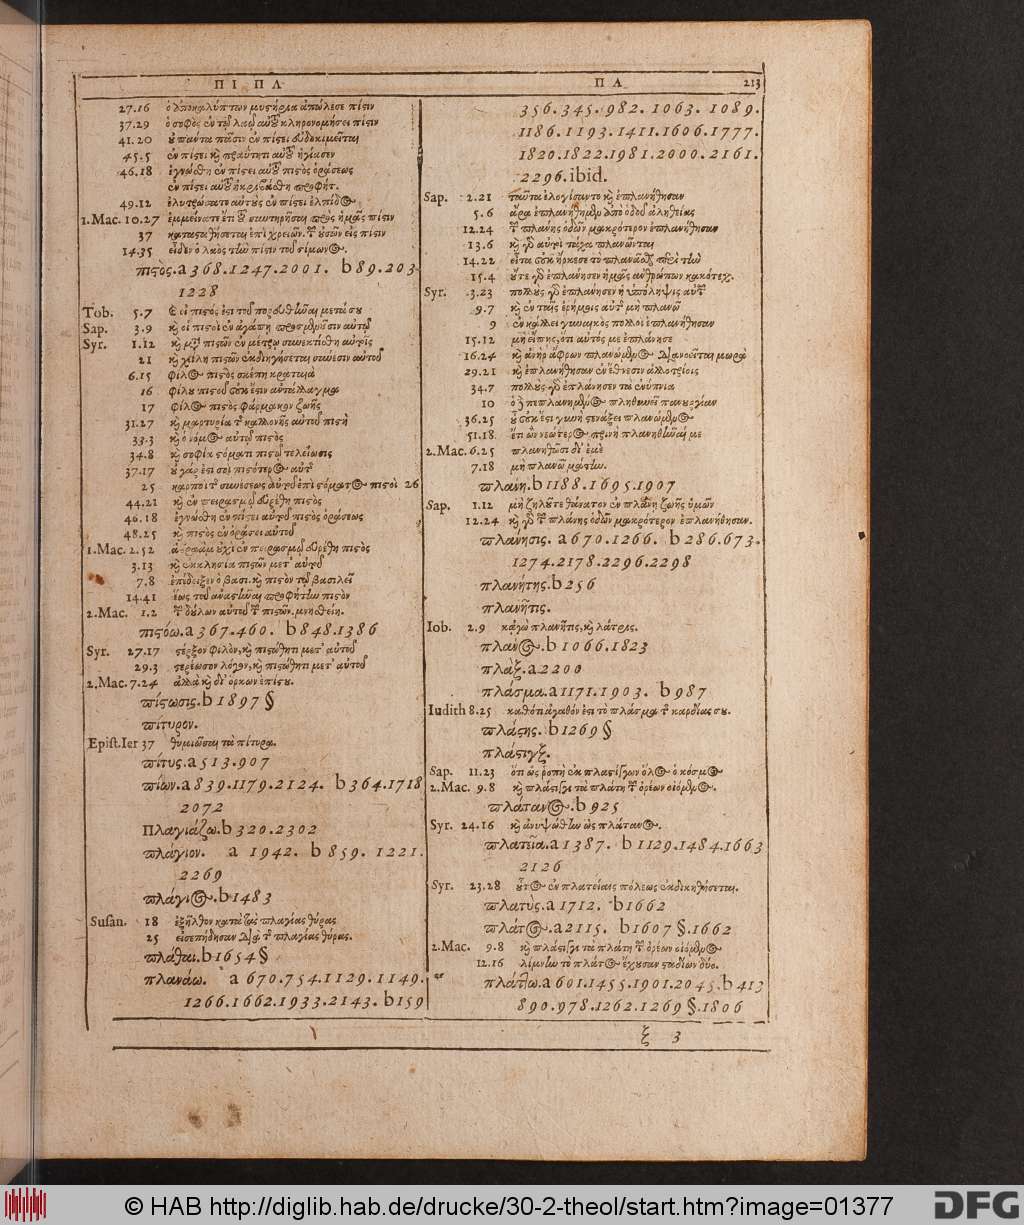 ΠΙ ΠΛ
ΠΛ 213
27.16 ὁ ἀποκαλύπτων μυστήρια ἀπώλεσε πίστιν
37.29 ὁ σοφὸς ἐν τῷ λαῷ αὐτοῦ κληρονομήσει πίστιν
41.20 οὐ πάντα πᾶσιν ἐν πίστει εὐδοκιμεῖται
45.5 ἐν πίστει καὶ πραΰτητι αὐτοῦ ἡγίασεν
46.18 ἐγνώσθη ἐν πίστει αὐτοῦ πιστὸς ὁράσεως
ἐν πίστει αὐτοῦ ἠκριβάσθη προφήτ.
49.12 ἐλυτρώσατο αὐτοὺς ἐν πίστει ἐλπίδος
1.Mac. 10.27 ἐμμείνατε ἔτι τοῦ συντηρῆσαι πρὸς ἡμᾶς πίστιν
37 κατασταθήσεται ἐπὶ χρειῶν. τῶν οὐσῶν εἰς πίστιν
14.35 εἶδεν ὁ λαὸς τὴν πίστιν τοῦ σίμωνος.
πιστὸς. a 368.1247.2001. b 89.203
1228
Tob. 5.7 εἰ πιστός ἐστι τοῦ πορευθῆναι μετά σου
Sap. 3.9 καὶ οἱ πιστοὶ ἐν ἀγάπῃ προσμενοῦσιν αὐτῷ
Syr. 1.12 καὶ μετὰ πιστῶν ἐν μήτρᾳ συνεκτίσθη αὐτοῖς
21 καὶ χείλη πιστῶν ἐκδιηγήσεται σύνεσιν αὐτοῦ
6.15 φίλος πιστὸς σκέπη κραταιὰ
16 φίλου πιστοῦ οὐκ ἔστιν ἀντάλλαγμα
17 φίλος πιστὸς φάρμακον ζωῆς
31.27 καὶ μαρτυρία τῆς καλλονῆς αὐτοῦ πιστὴ
33.3 καὶ ὁ νόμος αὐτῷ πιστὸς
34.8 καὶ σοφία στόματι πιστῷ τελείωσις
37.17 οὐ γάρ ἐστί σοι πιστότερος αὐτῆς
25 καρποὶ τῆς συνέσεως αὐτοῦ ἐπὶ στόματος πιστοὶ 26
44.21 καὶ ἐν πειρασμῷ εὑρέθη πιστὸς
46.18 ἐγνώσθη ἐν πίστει αὐτοῦ πιστὸς ὁράσεως
48.25 καὶ πιστὸς ἐν ὁράσει αὐτοῦ
1.Mac. 2.52 ἀβραὰμ οὐχὶ ἐν πειρασμῷ εὑρέθη πιστὸς
3.13 καὶ ἐκκλησία πιστῶν μετ' αὐτοῦ
7.8 ἐπέδειξεν ὁ βασι. καὶ πιστὸν τῷ βασιλεῖ
14.41 ἕως τοῦ ἀναστῆναι προφήτην πιστὸν
2.Mac. 1.2 τῶν δούλων αὐτοῦ τῶν πιστῶν. μνησθείη.
πιστόω. a 367.460. b 848.1386
Syr. 27.17 στέρξον φίλον, καὶ πιστώθητι μετ' αὐτοῦ
29.3 στερέωσον λόγον, καὶ πιστώθητι μετ' αὐτοῦ
2.Mac. 7.24 ἀλλὰ καὶ δι' ὅρκων ἐπίστου.
πίστωσις. b 1897 §
πίτυρον.
Epist.Ier 37 θυμιῶσαι τὰ πίτυρα.
πίτυς. a 513.907
πίων. a 839.1179.2124. b 364.1718
2072
Πλαγιάζω. b 320.2302
πλάγιον. a 1942. b 859. 1221.
2269
πλάγιος. b 1483
Susan. 18 ἐξῆλθον κατὰ τὰς πλαγίας θύρας
25 εἰσεπήδησαν διὰ τῆς πλαγίας θύρας.
πλάθαι. b 1654 §
πλανάω. a 670.754.1129.1149.
1266.1662.1933.2143. b 159
356.345.982. 1063. 1089.
1186.1193.1411.1606.1777.
1820.1822.1981.2000.2161.
2296. ibid.
Sap. 2.21 ταῦτα ἐλογίσαντο καὶ ἐπλανήθησαν
5.6 ἄρα ἐπλανήθημεν ἀπὸ ὁδοῦ ἀληθείας
12.24 τῶν πλάνης ὁδῶν μακρότερον ἐπλανήθησαν
13.6 καὶ γὰρ αὐτοὶ τάχα πλανῶνται
14.22 εἶτα οὐκ ἤρκεσε τὸ πλανᾶσθαι περὶ τὴν
15.4 οὔτε γὰρ ἐπλάνησεν ἡμᾶς ἀνθρώπων κακότεχ.
Syr. 3.23 πολλοὺς γὰρ ἐπλάνησεν ἡ ὑπόληψις αὐτῶν
9.7 καὶ ἐν ταῖς ἐρήμοις αὐτῆς μὴ πλανῶ
9 ἐν κάλλει γυναικὸς πολλοὶ ἐπλανήθησαν
15.12 μὴ εἴπῃς, ὅτι αὐτός με ἐπλάνησε
16.24 καὶ ἀνὴρ ἄφρων πλανώμενος διανοεῖται μωρὰ
29.21 καὶ ἐπλανήθησαν ἐν ἔθνεσιν ἀλλοτρίοις
34.7 πολλοὺς γὰρ ἐπλάνησεν τὰ ἐνύπνια
10 ὁ δὲ πεπλανημένος πληθυνεῖ πανουργίαν
36.25 οὗ οὐκ ἔστι γυνὴ στενάξει πλανώμενος
51.18 ἔτι ὢν νεώτερος πρινὴ πλανηθῆναί με
2.Mac. 6.25 πλανηθῶσι δι' ἐμὲ
7.18 μὴ πλανῶ μάτην.
πλάνη. b 1188.1695.1907
Sap. 1.12 μὴ ζηλοῦτε θάνατον ἐν πλάνῃ ζωῆς ὑμῶν
12.24 καὶ γὰρ τῶν πλάνης ὁδῶν μακρότερον ἐπλανήθησαν.
πλάνησις. a 670.1266. b 286.673.
1274.2178.2296.2298
πλανήτης. b 256
πλανῆτις.
Iob. 2.9 κἀγὼ πλανῆτις, καὶ λάτρις.
πλάνος. b 1066.1823
πλάξ. a 2200
πλάσμα. a 1171.1903. b 987
Iudith 8.25 καθότι ἀγαθόν ἐστι τὸ πλάσμα τῆς καρδίας σου.
πλάστης. b 1269 §
πλάστιγξ.
Sap. 11.23 ὅτι ὡς ῥοπὴ ἐκ πλαστίγγων ὅλος ὁ κόσμος
2.Mac. 9.8 καὶ πλάστιγγι τὰ πλάτη τῶν ὀρέων οἰόμενος.
πλάτανος. b 925
Syr. 24.16 καὶ ἀνυψώθην ὡς πλάτανος.
πλατεῖα. a 1387. b 1129.1484.1663
2126
Syr. 23.28 οὗτος ἐν πλατείαις πόλεως ἐκδικηθήσεται.
πλατὺς. a 1712. b 1662
πλάτος. a 2115. b 1607 §.1662
2.Mac. 9.8 καὶ πλάστιγγι τὰ πλάτη τῶν ὀρέων οἰόμενος
12.16 λίμνην τὸ πλάτος ἔχουσαν σταδίων δύο.
πλάττω. a 601.1455.1901.2045. b 413
890.978.1262.1269 §.1806
ξ 3
© HAB http://diglib.hab.de/drucke/30-2-theol/start.htm?image=01377
DFG